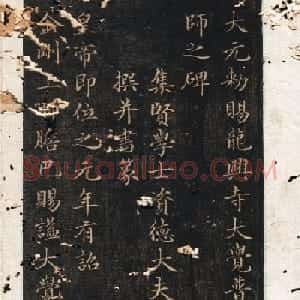 大元勑賜龍興寺大覺普
師之碑
集賢學士資德大夫
撰并書篆
皇帝即位之元年有詔
金剛上師膽巴賜謚大覺
Shufaziliao.com